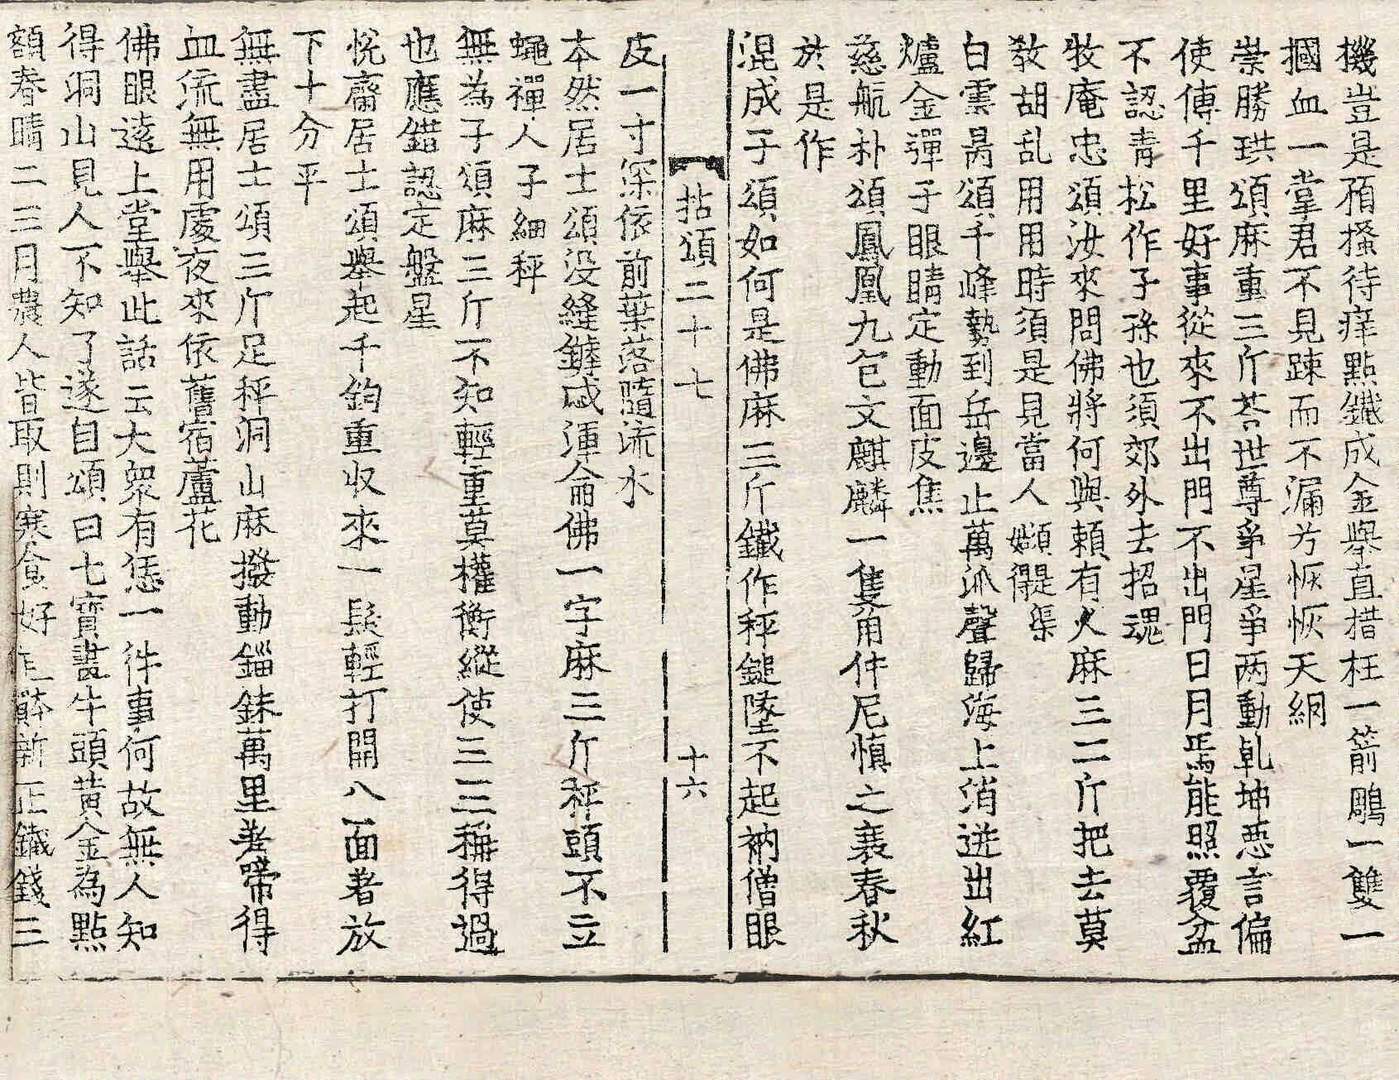 機豈是預搔待痒點鐵成金舉直措枉一箭鵰一雙一
摑血一掌君不見踈而不漏兮恢恢天網
崇勝珙頌麻重三斤荅世尊爭星爭两動乹坤恶言偏
使傳千里好事從來不出門不出門日月焉能照覆盆
不認青松作子孫也須郊外去招魂
牧庵忠頌汝來問佛將何與頼有火麻三二斤把去莫
敎胡乱用用時須是見當人 㜺得是渠
白雲昺頌千峰勢到岳邊止萬派聲歸海上消迸出紅
爐金彈子眼睛定動面皮焦
慈航朴頌鳳凰九包文麒麟一隻角仲尼慎之衰春秋
於是作
混成子頌如何是佛麻三斤鐵作秤鎚墜不起衲僧眼
拈頌二十七 十六
皮一寸深依前葉落隨流水
本然居士頌没縫罅成渾侖佛一字麻三斤秤頭不立
蠅禪人子細秤
無為子頌麻三斤不知輕重莫權衡縱使三三稱得過
也應錯認定盤星
悅齋居士頌舉起千鈞重收來一髮輕打開八面着放
下十分平
無盡居士頌三斤足秤洞山麻撥動錙銖萬里差啼得
血流無用處夜來依舊宿蘆花
佛眼遠上堂舉此話云大衆有恁一件事何故無人知
得洞山見人不知了遂自頌曰七寶畫牛頭黄金為點
額春晴二三月農人皆取則寒食好 新正鐵錢三